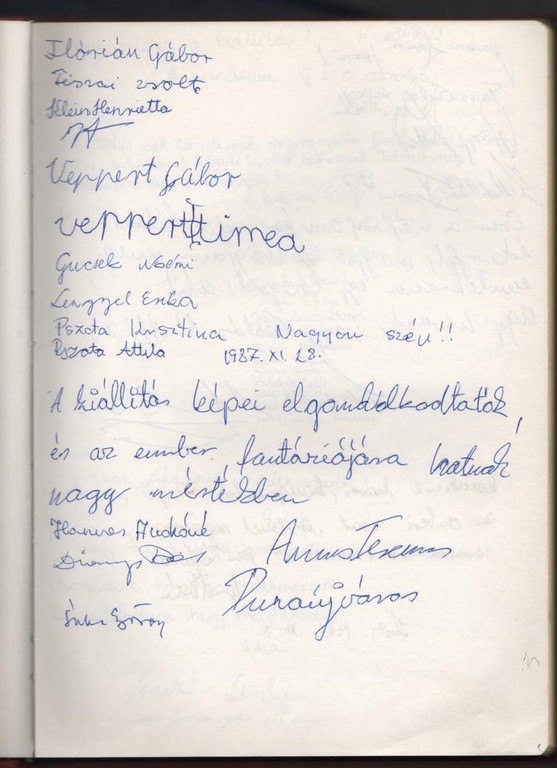 Flórián Gábor
Tiszai Zsolt
Klein Henrietta
Veppert Gábor
veppert timea
Gucsek Noémi
Lengyel Erika
Pszota Krisztina Nagyon szép!!
Pszota Attila 1987. XI. 28.
A kiállítás képei elgondolkodtatók,
és az ember fantáziájára hatnak
nagy mértékben
Hamvas Andrásné
Dunaújváros